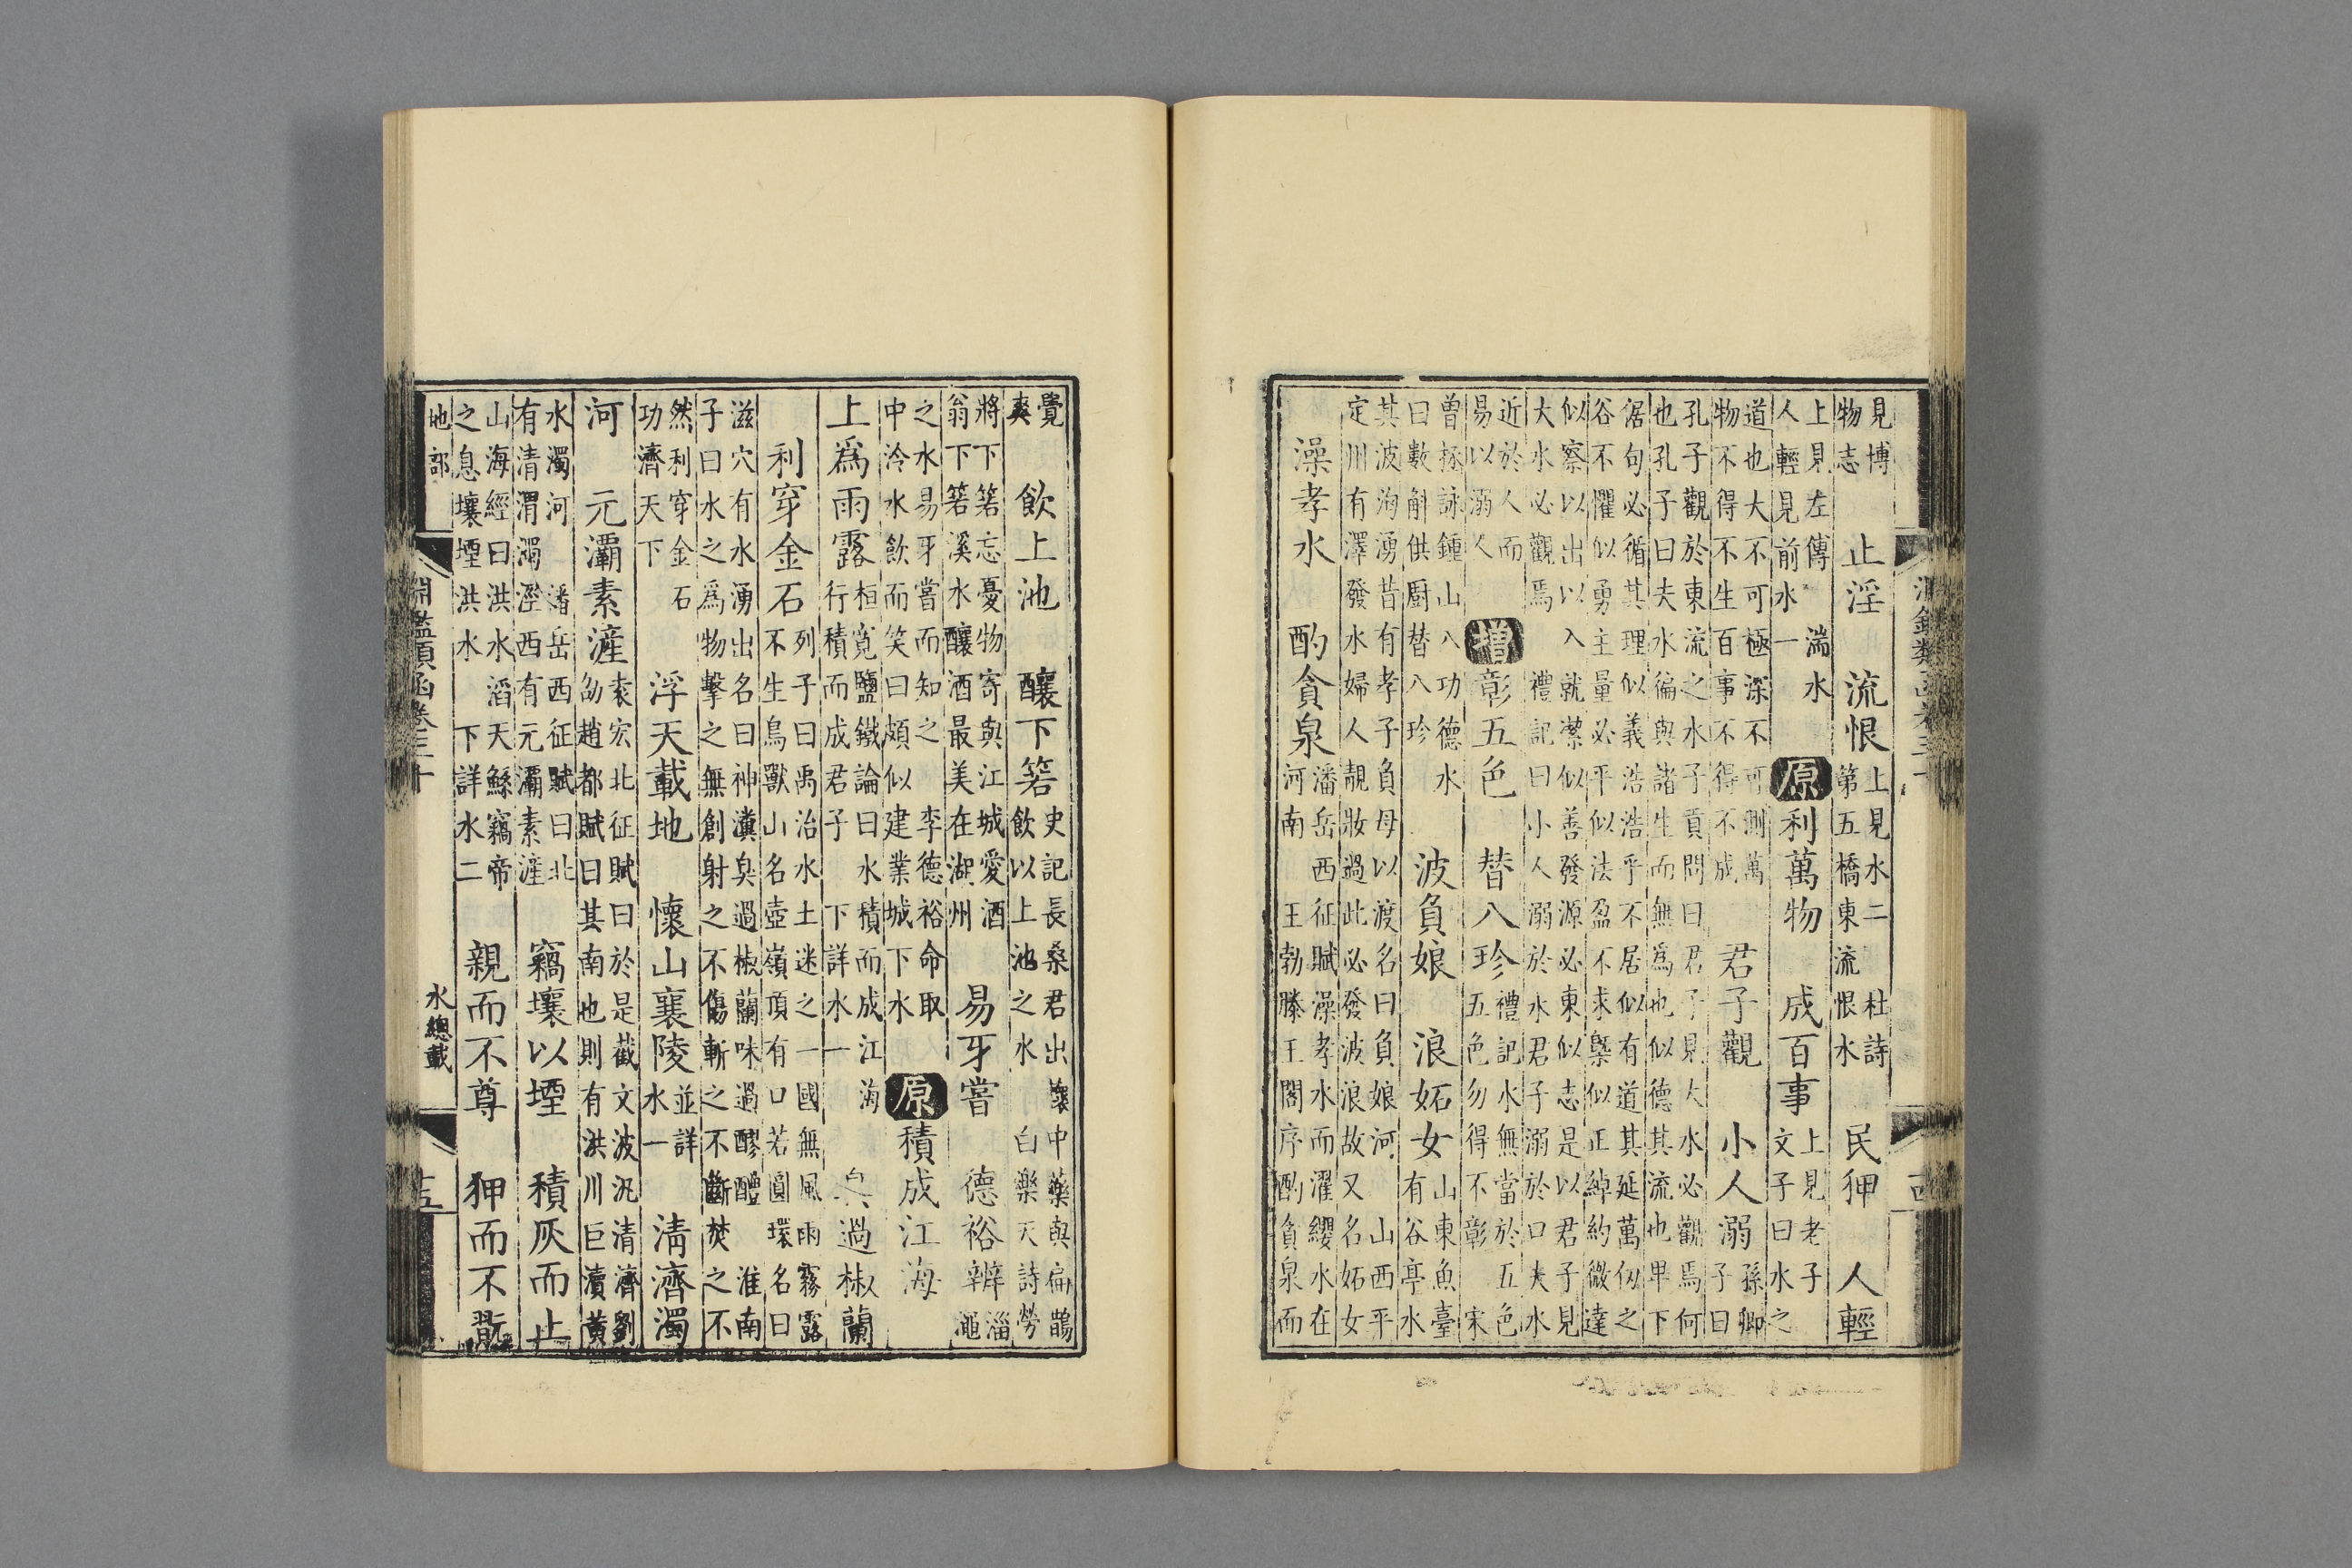 見博物志　止淫　流恨　上見水二　杜詩第五橋東流恨水　民狎　人輕
上見左傳　湍水人輕見前水一　原　利萬物　成百事　上見老子文子曰水之
道也大不可極深不可測萬物不得不生百事不得不成　君子觀　小人溺　孫卿子曰
孔子觀於東流之水子貢問曰君子見大水必觀焉何也孔子曰夫水徧與諸生而無為也似德其流也卑下
倨句必循其理似義浩浩乎不居似有道其延萬仞之谷不懼似勇主量必平似法盈不求槩似正綽約微達
似察以出以入就潔似善發源必東似志是以君子見大水必觀焉　禮記曰小人溺於水君子溺於口夫水
近於人而易以溺人　增　彰五色　替八珍　禮記水無當於五色五色勿得不彰　宋
曾拯詠鍾山八功德水曰數斛供厨替八珍　波負娘　浪妬女　山東魚臺有谷亭水
其波洶湧昔有孝子負母以渡名曰負娘河　山西平定州有澤發水婦人靚妝過此必發波浪故又名妬女
澡孝水　酌貪泉　潘岳西征賦澡孝水而濯纓水在河南　王勃滕王閣序酌貪泉而
覺爽　飲上池　釀下箬　史記長桑君出懷中藥與扁鵲飲以上池之水　白樂天詩勞
將下箬忘憂物寄與江城愛酒翁下箬溪水釀酒最美在湖州　易牙嘗　德裕辨　淄澠
之水易牙嘗而知之　李德裕命取中泠水飲而笑曰頗似建業城下水　原　積成江海
上爲雨露　桓寛鹽鐵論曰水積而成江海行積而成君子　下詳水一　臭過椒蘭
利穿金石　列子曰禹治水土迷之一國無風雨霧露不生鳥獸山名壺嶺頂有口若圓環名曰
滋穴有水湧出名曰神瀵臭過椒蘭味過醪醴　淮南子曰水之為物擊之無創射之不傷斬之不斷焚之不
然利穿金石功濟天下　浮天載地　懷山襄陵　並詳水一　清濟濁
河　元灞素滻　袁宏北征賦曰於是截文波汎清濟劉劭趙都賦曰其南也則有洪川巨瀆黃
水濁河　潘岳西征賦曰北有清渭濁涇西有元灞素滻　竊壤以堙　積灰而止
山海經曰洪水滔天鯀竊帝之息壤堙洪水　下詳水二　親而不尊　狎而不翫
地部　淵鑑類函卷三十　水總載